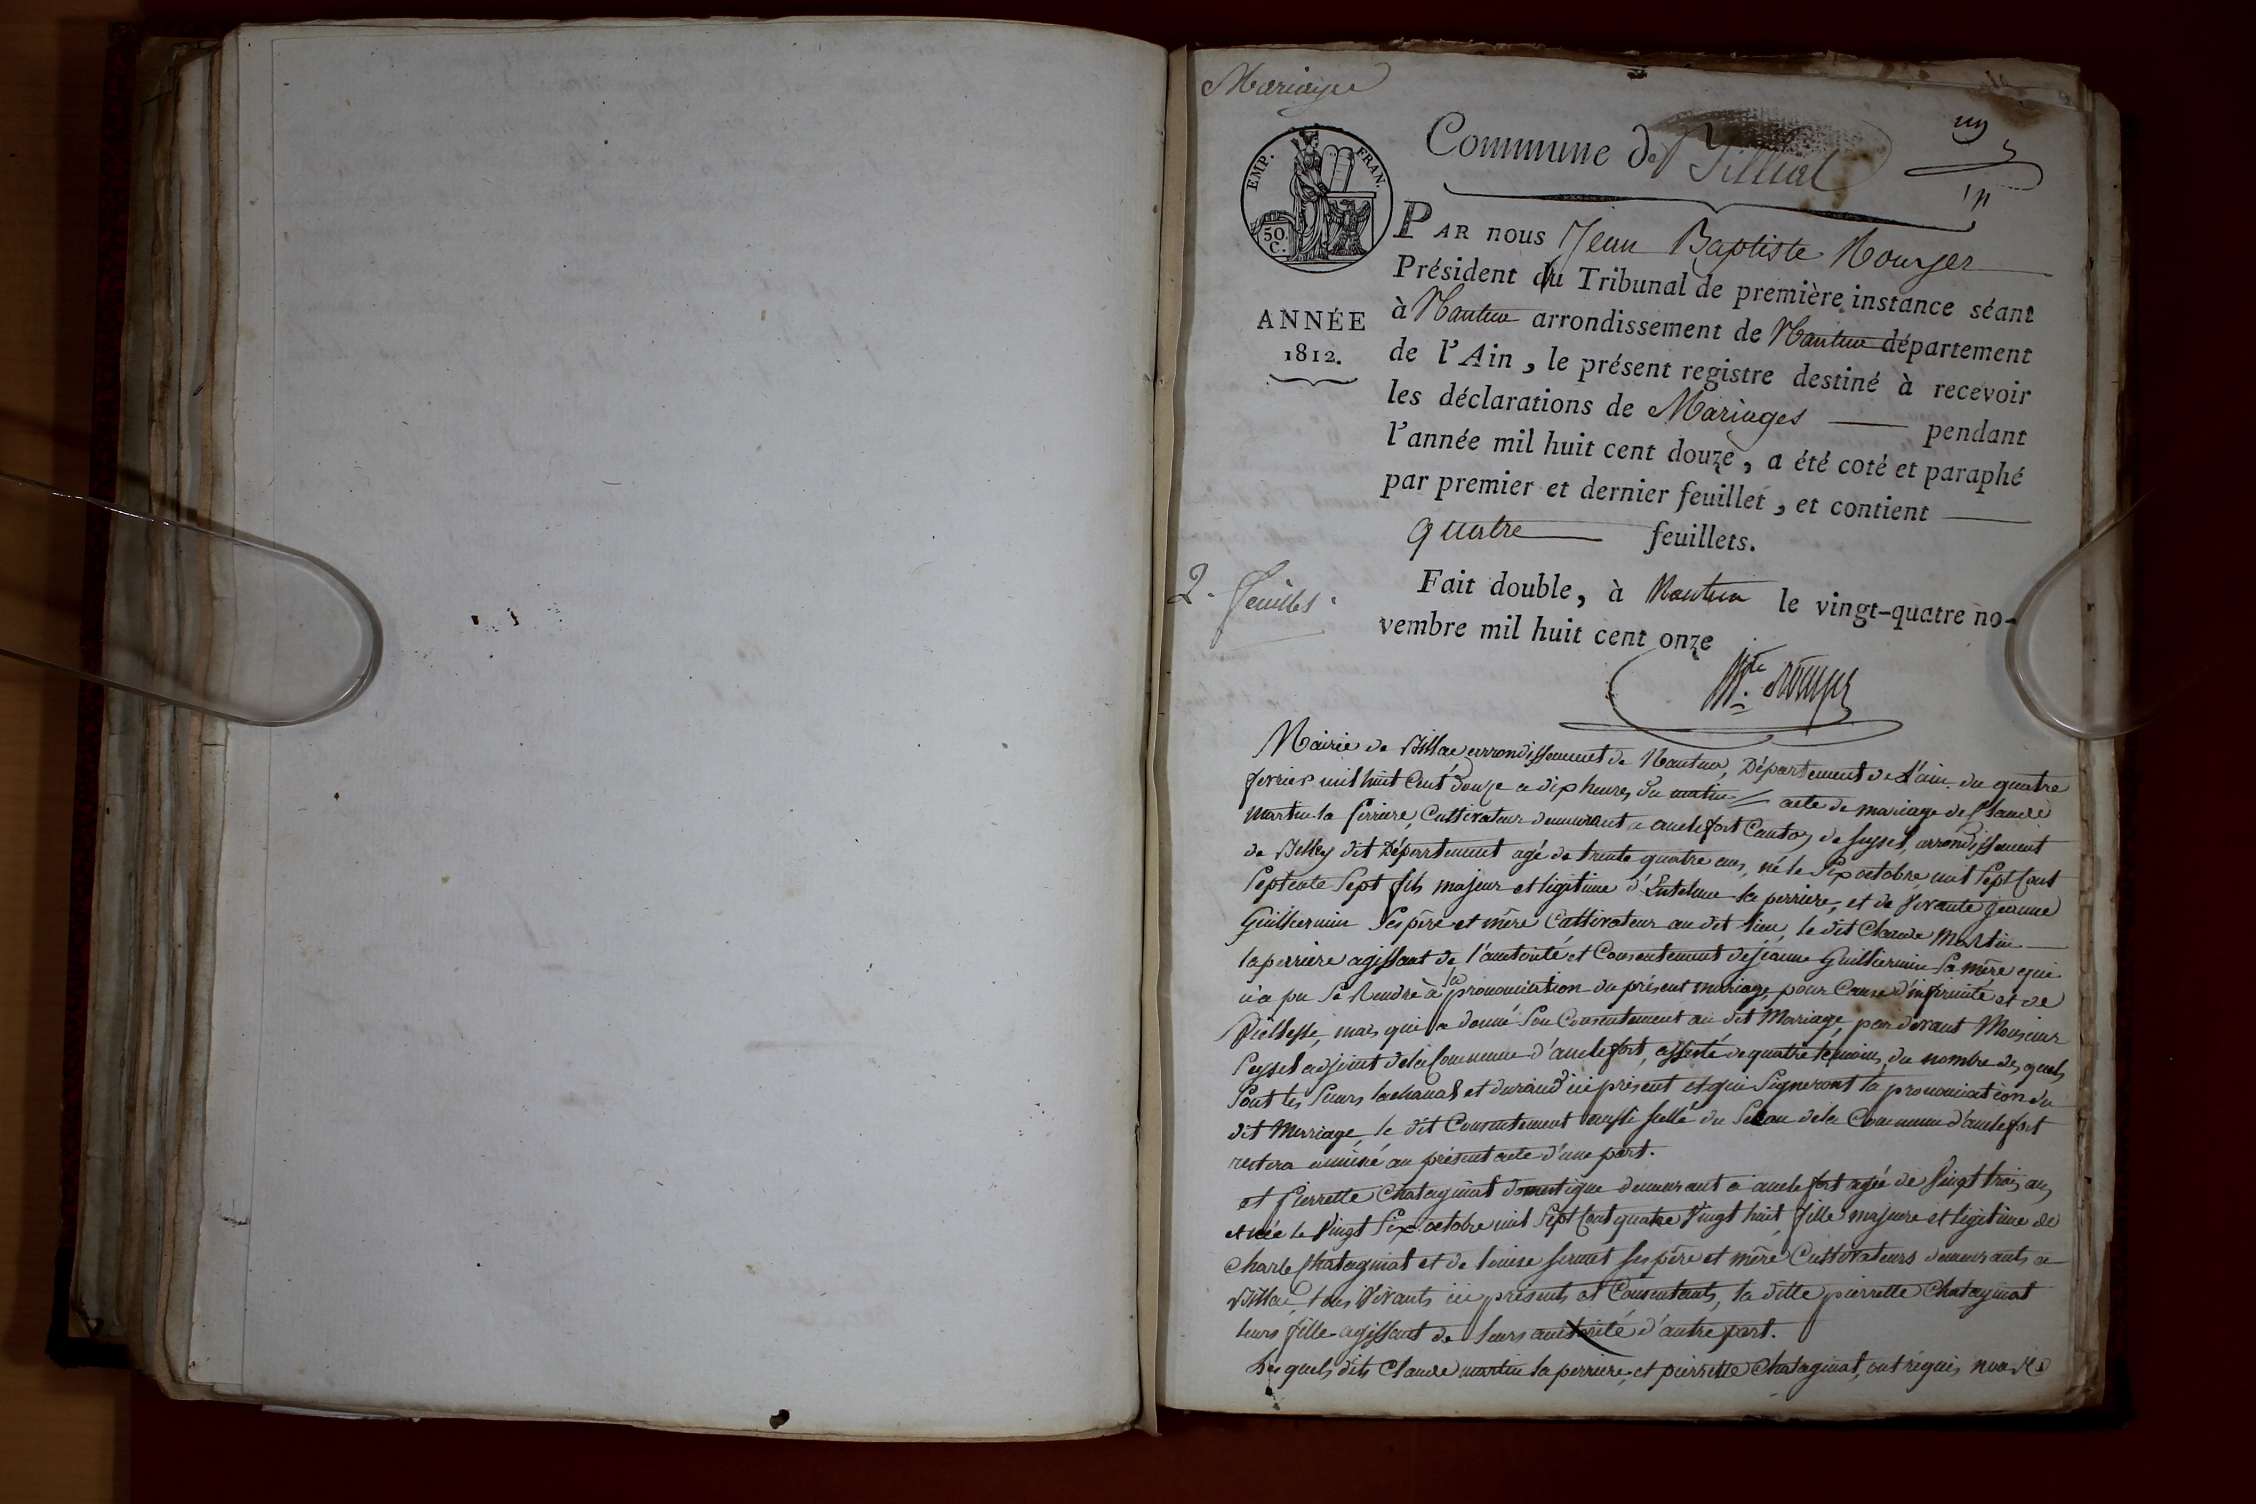 Mariage
Commune de Billiat
un
EMP. FRAN.
50. C.
PAR nous Jean Baptiste Rouyer
Président du Tribunal de première instance séant
ANNÉE
1812.
à Nantua arrondissement de Nantua département
de l'Ain, le présent registre destiné à recevoir
les déclarations de Mariages pendant
l'année mil huit cent douze, a été coté et paraphé
par premier et dernier feuillet, et contient
quatre feuillets.
2. feuilles.
Fait double, à Nantua le vingt-quatre no-
vembre mil huit cent onze
Mairie de arrondissement de Nantua, Département de l'ain du quatre
fevrier mil huit Cent douze a dix heures du matin acte de mariage de Claude
martin la perriere, Cultivateur demeurant a anclefort Canton de seyssel, arrondissement
de Belley dit Département agé de trente quatre ans, né le Six octobre mil Sept Cent
Septente Sept fils majeur et ligitime d'Entelme la perriere, et de vivante jeanne
Guilliermin Ses père et mère Cultivateur au dit lieu, le dit Claude Martin
laperriere agissant de l'autorité et Consentement de jeanne Guilliermin Sa mère qui
n'a pu Se Rendre à la prononciation du présent mariage, pour Cause d'infirmité et de
viellesse, mais qui a donné Son Consentement au dit Mariage, par devant Monsieur
Seyssel adjoint dela Commune d'anclefort, assisté de quatre témoins, du nombre des quels
Sont les Sieurs lachanal et durand ici présent et qui Signeront la prononciation du
dit Marriage, le dit Consentement aussi scellé du Sceau dela Commune d'anclefort
restera annexé au présent acte d'une part.
et pierrette Chatagnat domestique demeurant a anclefort agée de vingt trois ans
et née le vingt Six octobre mil Sept Cent quatre vingt huit, fille majeure et ligitime de
Charle Chatagniat et de louise ses père et mère Cultivateurs demeurants a
tous vivants ici présents et Consentants, la ditte pierrette Chatagniat
leurs fille agissant de leurs autorité d'autre part.
les quels dits Claude martin laperriere, et pierrette Chatagniat, ont réquis